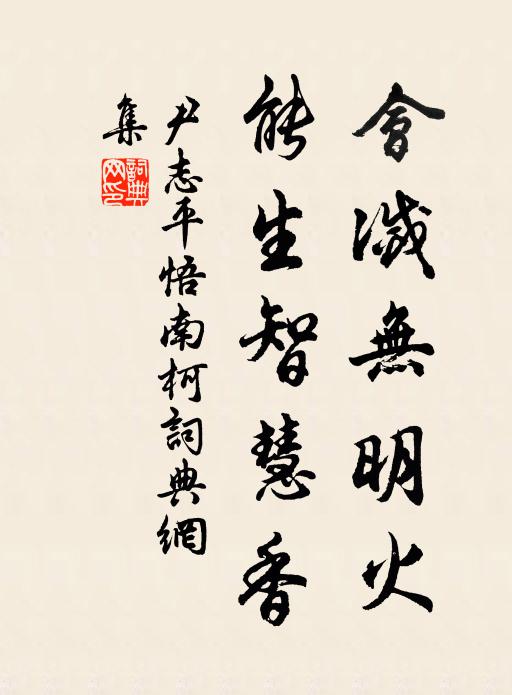 會滅無明火
能生智慧香
尹志平悟南柯詞典網
集
詞典
網印